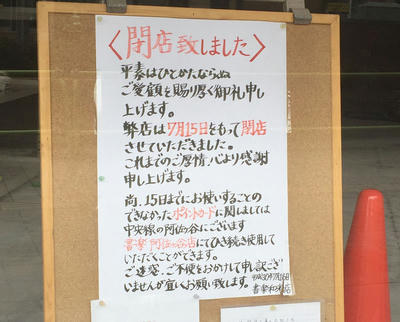 〈閉店致しました〉
平素はひとかたならぬ
ご愛顧を賜り厚く御礼申し
上げます。
弊店は7月15日をもって閉店
させていただきました。
これまでのご厚情、心より感謝
申し上げます。
尚、15日までにお使いすることの
できなかったポイントカードに関しましては
中央線の阿佐ヶ谷にございます
書楽 阿佐ヶ谷店にてひき続き使用して
いただくことができます。
ご迷惑、ご不便をおかけして申し訳ござ
いませんが宜しくお願い致します。